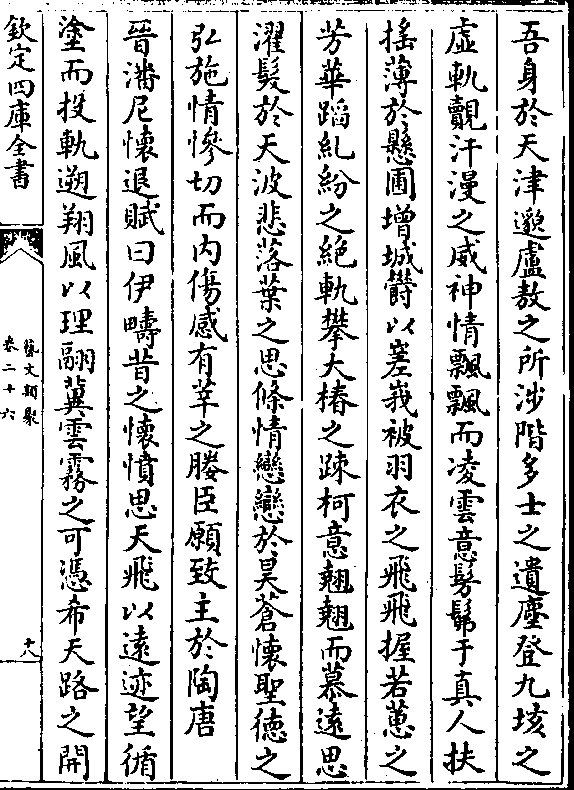 吾身於天津邈盧敖之所涉階多士之遺塵登九垓之
虛軌覿汗漫之威神情飄飄而凌雲意髣髴于真人扶
搖薄於懸圃增城欝以嵳峩被羽衣之飛飛握若蕙之
芳華蹈虬紛之絶軌攀大椿之踈柯意翹翹而慕遠思
濯髮於天波悲落葉之思條情戀戀於昊蒼懐聖徳之
弘施情慘切而内傷感有莘之媵臣願致主於陶唐
晉潘尼懐退賦曰伊疇昔之懐憤思天飛以遠迹望循
塗而投軌遡翔風以理翮冀雲霧之可憑希天路之開
欽定四庫全書
藝文類聚
卷二十六
十八